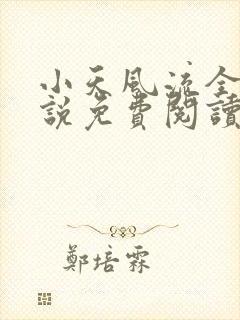 小天風流全
說免費閱讀
鄭培霖